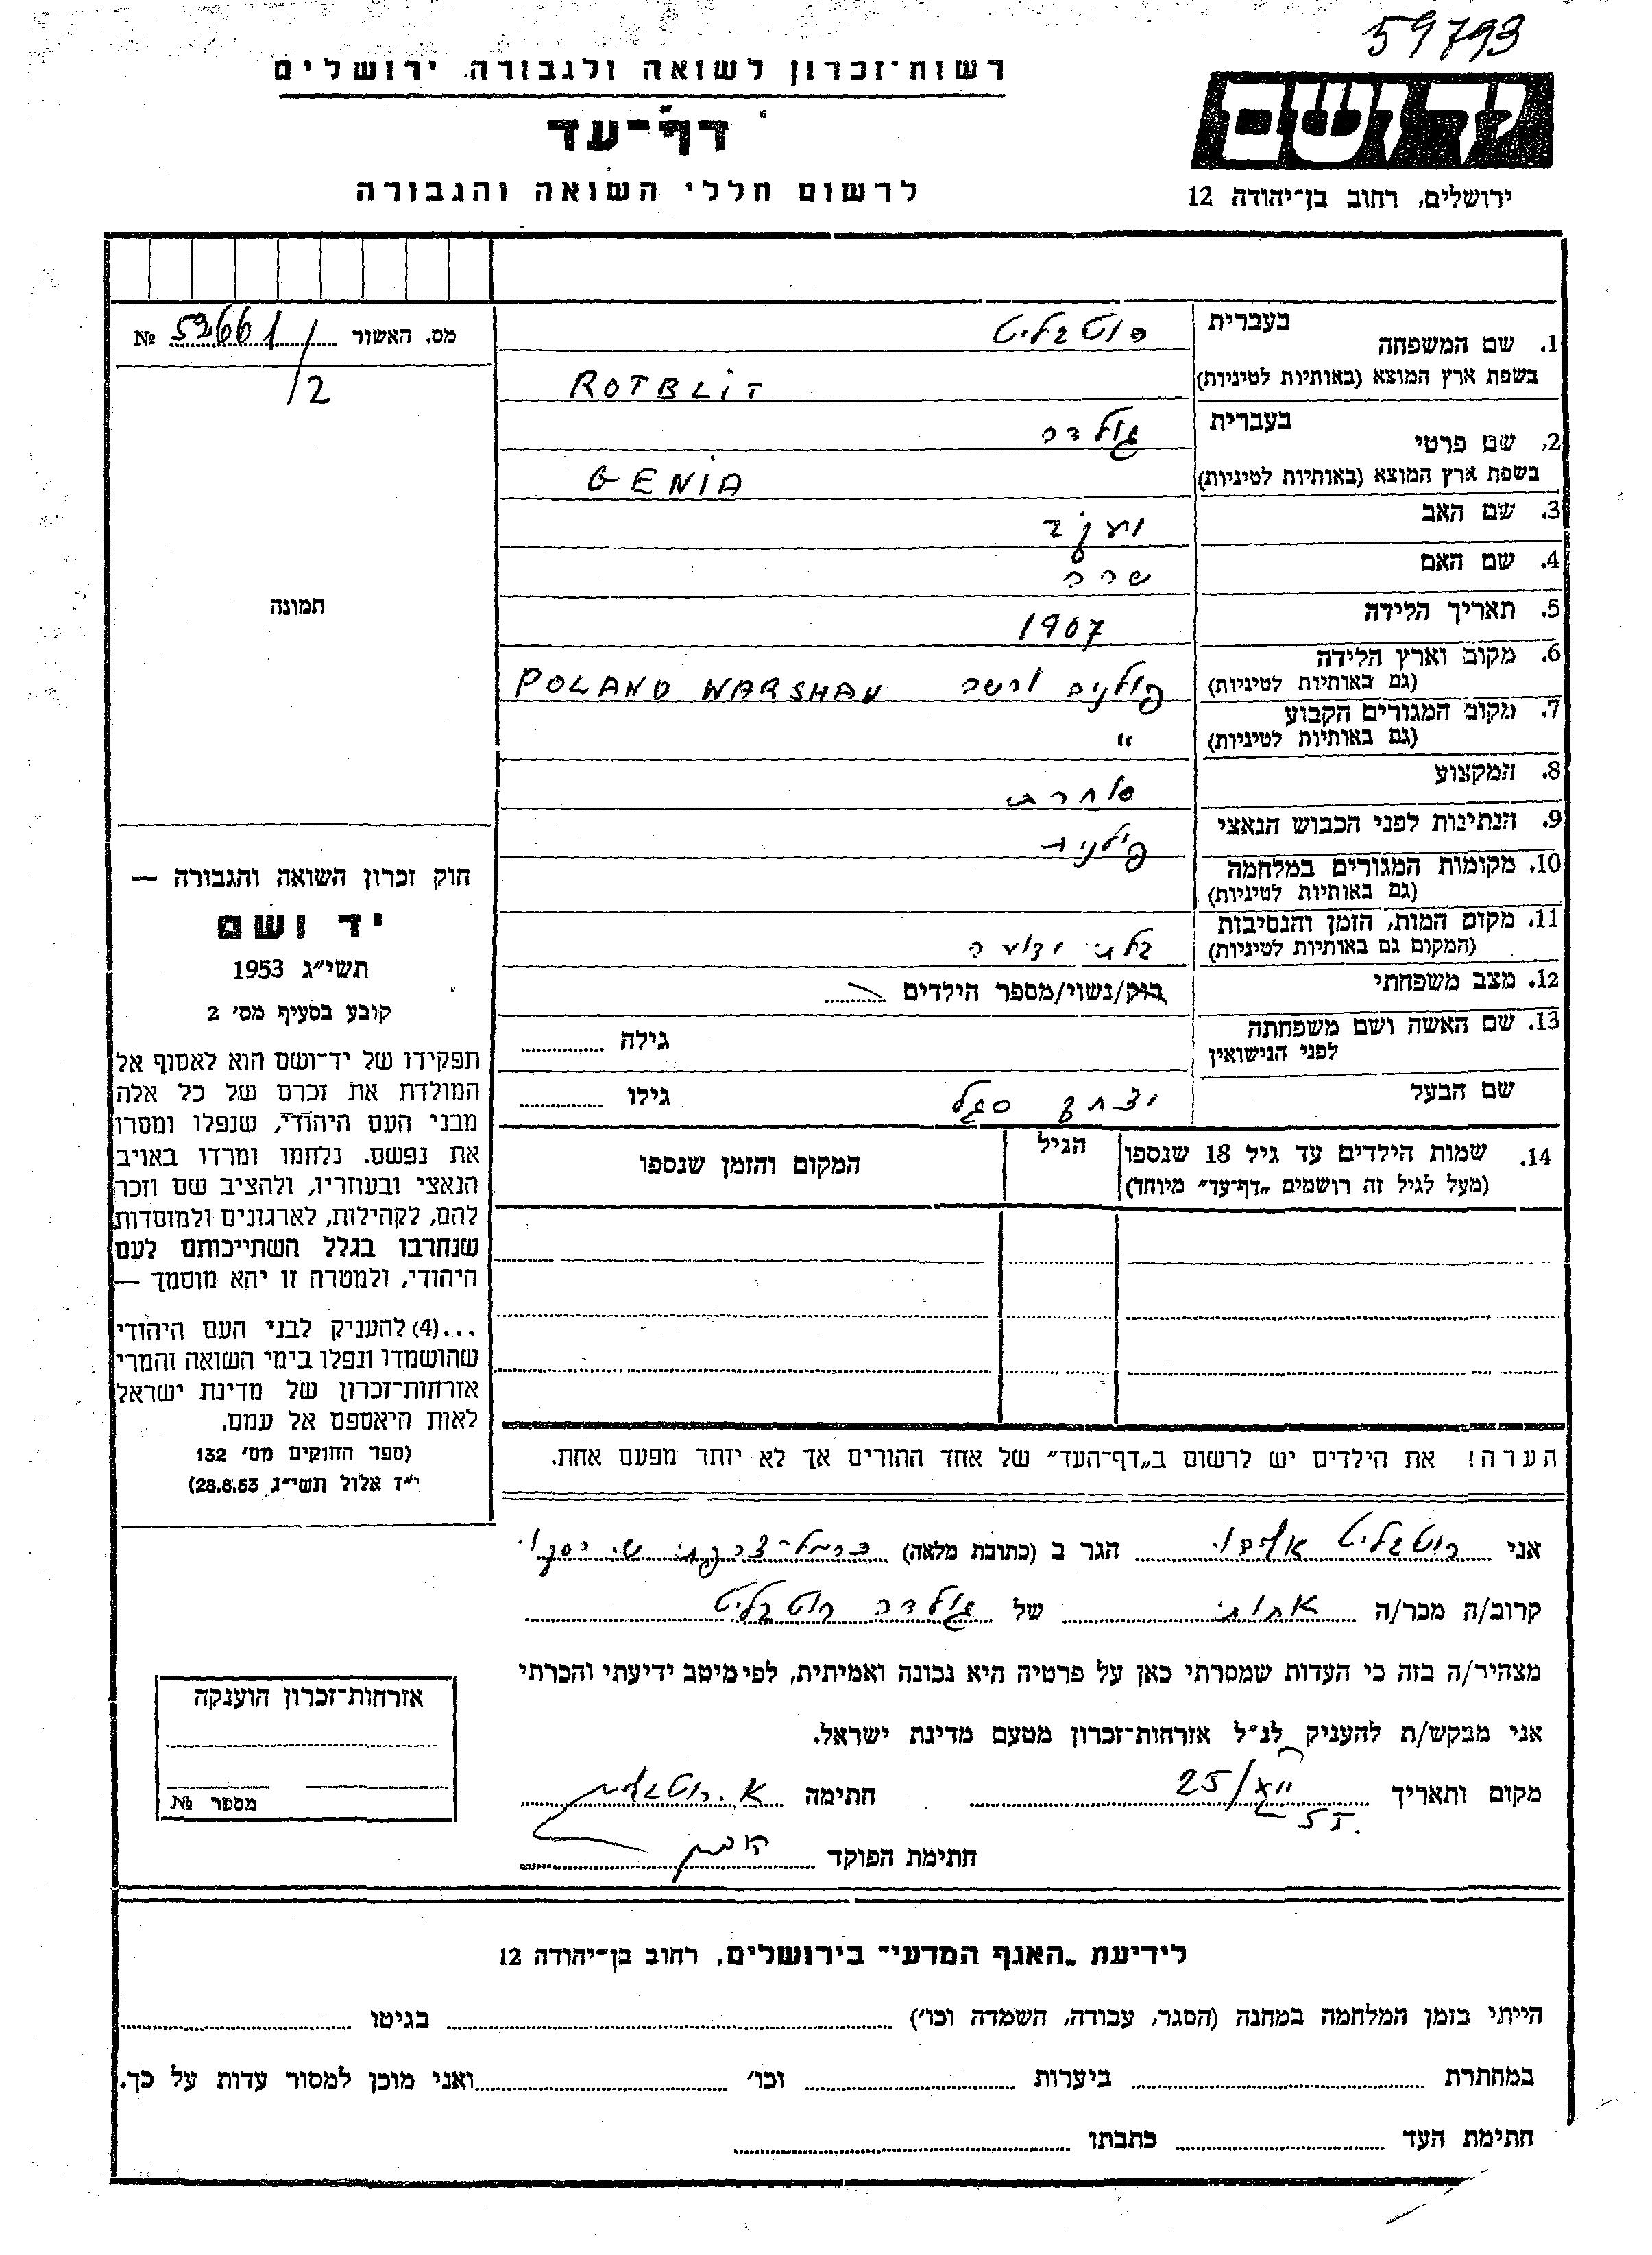 59793
רשות־זכרון לשואה ולגבורה, ירושלים
דף־עד
לרשום חללי השואה והגבורה
ידושם
ירושלים, רחוב בן־יהודה 12
מס. האשור 52661/2 №
1. שם המשפחה בעברית רוטבליט
בשפת ארץ המוצא (באותיות לטיניות) ROTBLIT
2. שם פרטי בעברית גולדה
בשפת ארץ המוצא (באותיות לטיניות) GENIA
3. שם האב יעקב
4. שם האם שרה
5. תאריך הלידה 1907
6. מקום וארץ הלידה פולנים ורשה POLAND WARSHAW
(גם באותיות לטיניות)
7. מקום המגורים הקבוע "
(גם באותיות לטיניות)
8. המקצוע סוחרת
9. הנתינות לפני הכבוש הנאצי פולנית
10. מקומות המגורים במלחמה
(גם באותיות לטיניות)
11. מקום המות, הזמן והנסיבות בלתי ידוע
(המקום גם באותיות לטיניות)
12. מצב משפחתי רווק/נשוי/מספר הילדים
13. שם האשה ושם משפחתה גילה
לפני הנישואין
שם הבעל יצחק סגל גילו
14. שמות הילדים עד גיל 18 שנספו הגיל המקום והזמן שנספו
(מעל לגיל זה רושמים „דף־עד״ מיוחד)
הערה! את הילדים יש לרשום ב„דף־העד״ של אחד ההורים אך לא יותר מפעם אחת.
תמונה
חוק זכרון השואה והגבורה —
יד ושם
תשי״ג 1953
קובע בסעיף מס׳ 2
תפקידו של יד־ושם הוא לאסוף אל
המולדת את זכרם של כל אלה
מבני העם היהודי, שנפלו ומסרו
את נפשם. נלחמו ומרדו באויב
הנאצי ובעוזריו, ולהציב שם וזכר
להם, לקהילות, לארגונים ולמוסדות
שנחרבו בגלל השתייכותם לעם
היהודי, ולמטרה זו יהא מוסמך —
...(4) להעניק לבני העם היהודי
שהושמדו ונפלו בימי השואה והמרי
אזרחות־זכרון של מדינת ישראל
לאות היאספם אל עמם.
(ספר החוקים מס׳ 132
י״ז אלול תשי״ג 28.8.53)
אני רוטבליט הגר ב (כתובת מלאה)
קרוב/ה מכר/ה אחותי של גולדה רוטבליט
מצהיר/ה בזה כי העדות שמסרתי כאן על פרטיה היא נכונה ואמיתית, לפי מיטב ידיעתי והכרתי
אני מבקש/ת להעניק לנ״ל אזרחות־זכרון מטעם מדינת ישראל.
מקום ותאריך 25/ חתימה א. רוטבליט
חתימת הפוקד
אזרחות־זכרון הוענקה
מספר №
לידיעת „האגף המדעי״ בירושלים, רחוב בן־יהודה 12
הייתי בזמן המלחמה במחנה (הסגר, עבודה, השמדה וכו׳) בגיטו
במחתרת ביערות וכו׳ ואני מוכן למסור עדות על כך.
חתימת העד כתבתו